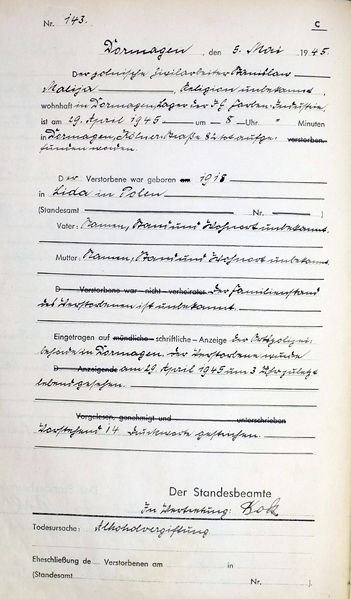 Nr. 143.
C
Dormagen, den 5. Mai 1945
Der polnische Zivilarbeiter Stanislaw
Malija, Religion unbekannt,
wohnhaft in Dormagen, Lager der I.G. Farben-Industrie
ist am 29. April 1945 um 8 Uhr " Minuten
in Dormagen, Kölner-Straße 82 tot aufge- verstorben.
funden worden.
Der Verstorbene war geboren 1918
in Lida in Polen
(Standesamt Nr. )
Vater: Namen, Stand und Wohnort unbekannt.
Mutter: Namen, Stand und Wohnort unbekannt.
D Verstorbene war – nicht – verheiratet Der Familienstand
des Verstorbenen ist unbekannt.
Eingetragen auf mündliche – schriftliche – Anzeige der Ortspolizei-
behörde in Dormagen. Der Verstorbene wurde
D Anzeigende am 29. April 1945 um 3 Uhr zuletzt
lebend gesehen.
Vorgelesen, genehmigt und unterschrieben
Vorstehend 14 Druckworte gestrichen.
Der Standesbeamte
In Vertretung:
Todesursache: Alkoholvergiftung
Eheschließung de Verstorbenen am in
(Standesamt Nr. )